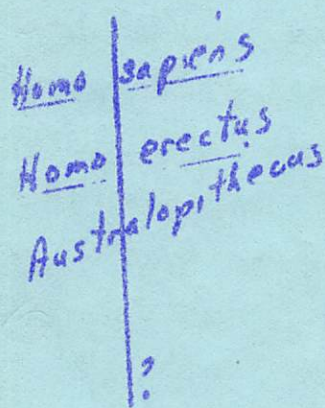 Homo sapiens
Homo erectus
Australopithecus
?